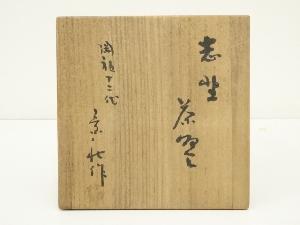 志野
茶碗
陶祖十二代
景秋作